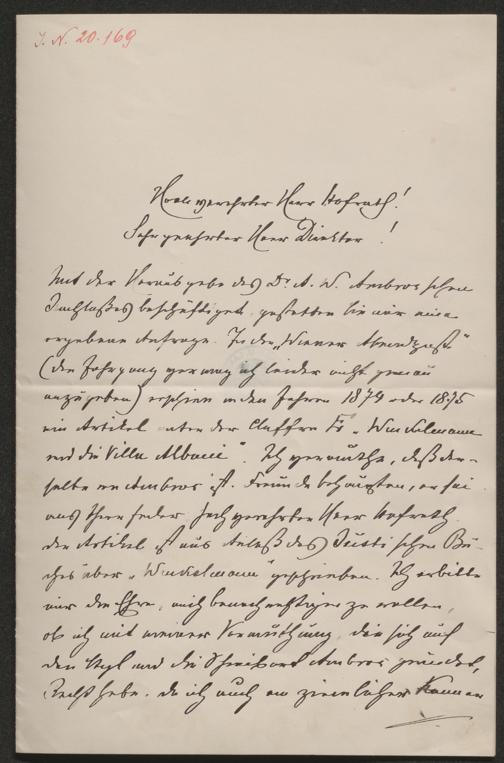 J. N. 20.169
Hochverehrter Herr Hofrath!
Sehr geehrter Herr Direktor!
Mit der Herausgabe des Dr. A. W. Ambros'schen
Nachlaßes beschäftiget, gestatten Sie mir eine
ergebene Anfrage. In der „Wiener Abendpost“
(den Jahrgang vermag ich leider nicht genau
anzugeben) erschien in den Jahren 1874 oder 1875
ein Artikel unter der Chiffre „Winckelmann
und die Villa Albani“. Ich vermuthe, daß der-
selbe von Ambros ist. Freunde behaupten, er sei
aus Ihrer Feder hochverehrter Herr Hofrath.
Der Artikel ist aus Anlaß des Justi'schen Bu-
ches über „Winckelmann“ geschrieben. Ich erbitte
mir die Ehre, mich benachrichtigen zu wollen,
ob ich mit meiner Vermuthung, die sich auf
den Styl und die Schreibart Ambros gründet,
Recht habe. Da ich auch en ziemlicher Kenner